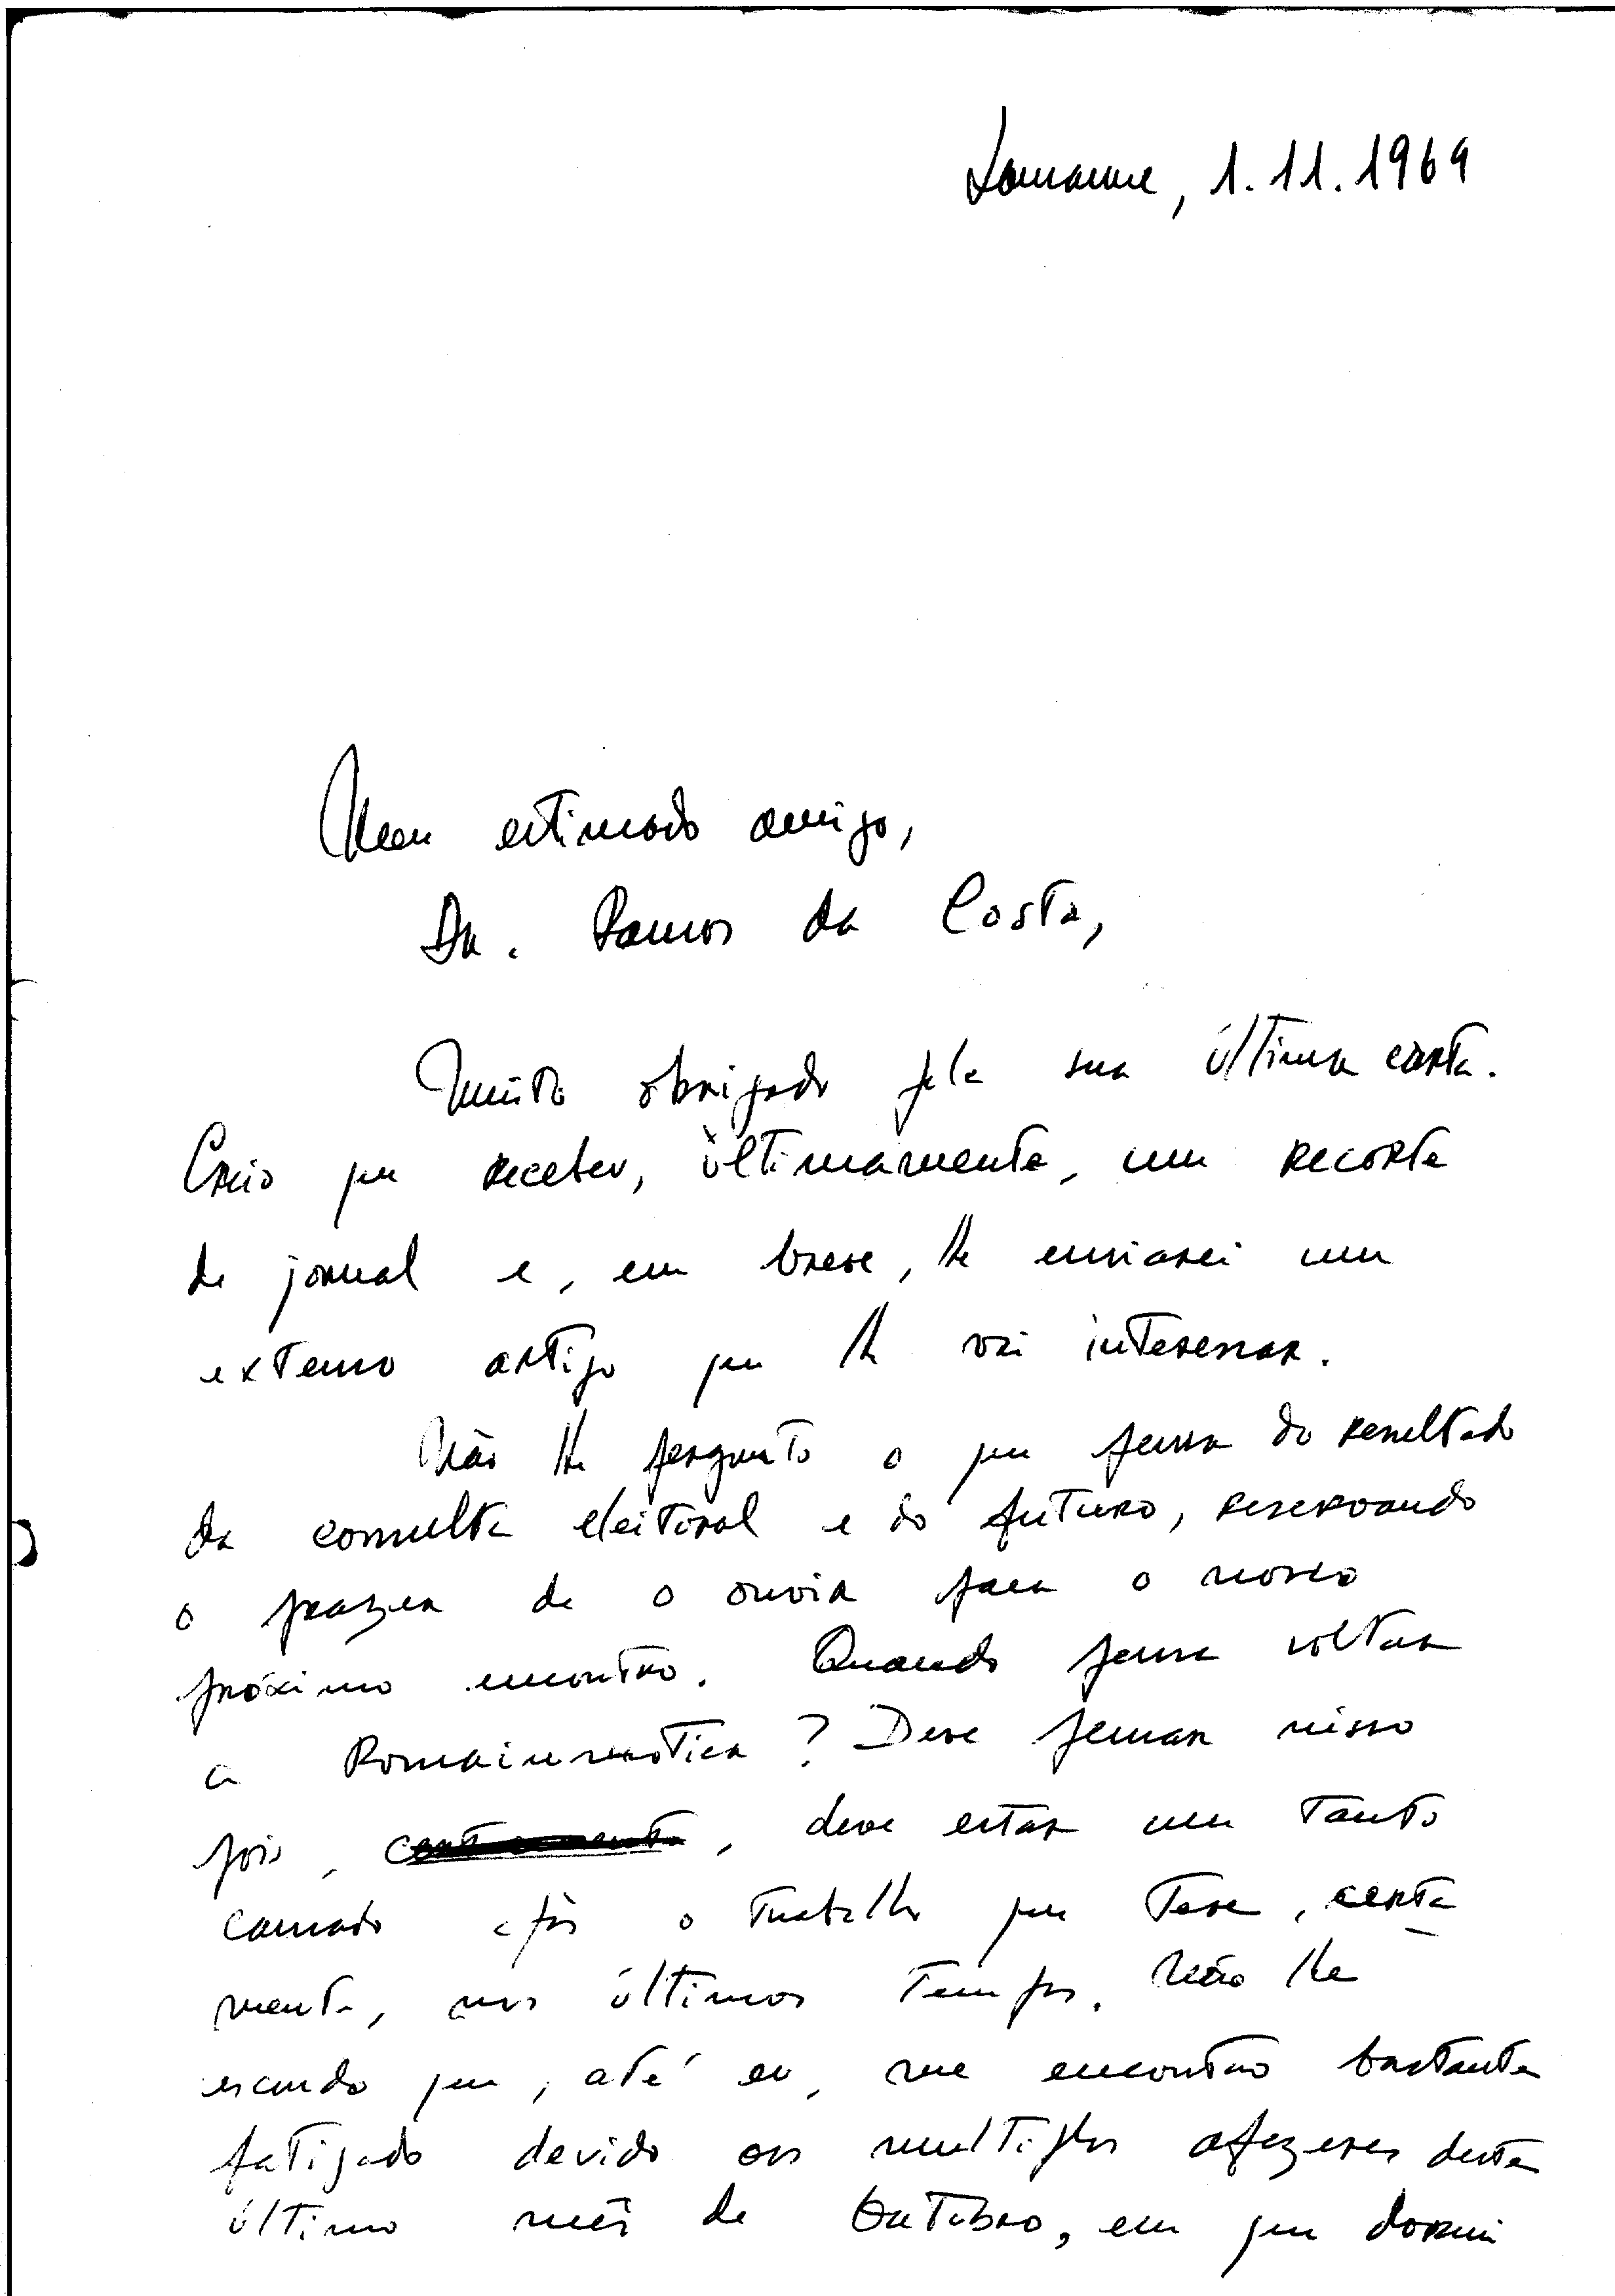 Lausanne, 1.11.1969
Meu estimado amigo,
Dr. Ramos da Costa,
Muito obrigado pela sua última carta.
Creio que recebeu, ùltimamente, um recorte
de jornal e, em breve, lhe enviarei um
extenso artigo que lhe vai interessar.
Não lhe pergunto o que pensa do resultado
da consulta eleitoral e do futuro, reservando
o prazer de o ouvir para o nosso
próximo encontro. Quando pensa voltar
a ? Deve pensar nisso
pois, certamente, deve estar um tanto
cansado após o trabalho que teve, certa
mente, nos últimos tempos. Não lhe
escondo que, até eu, me encontro bastante
fatigado devido aos multiplos afazeres deste
último mês de Outubro, em que dormi